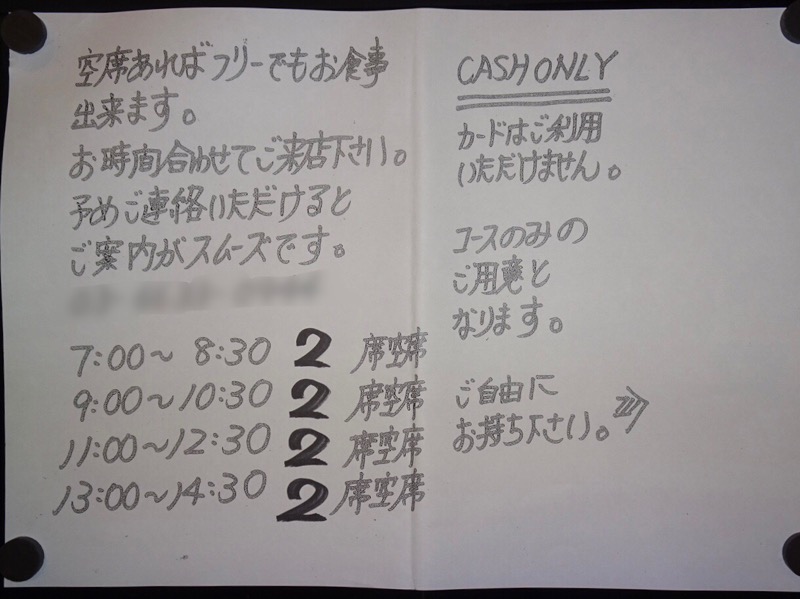 空席あればフリーでもお食事
出来ます。
お時間合わせてご来店下さい。
予めご連絡いただけると
ご案内がスムーズです。
7:00～8:30 2 席空席
9:00～10:30 2 席空席
11:00～12:30 2 席空席
13:00～14:30 2 席空席
CASH ONLY
カードはご利用
いただけません。
コースのみの
ご用意と
なります。
ご自由に
お持ち下さい。